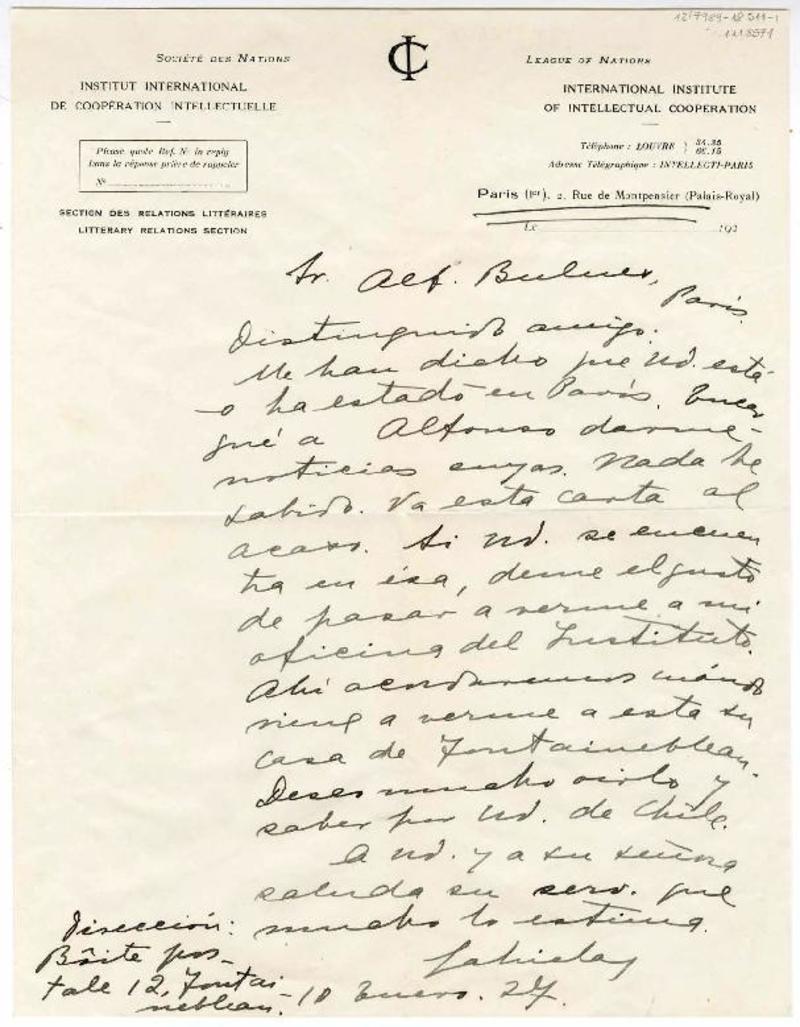 SOCIÉTÉ DES NATIONS
INSTITUT INTERNATIONAL
DE COOPÉRATION INTELLECTUELLE
Please quote Ref. Nº in reply
Dans la réponse prière de rappeler
Nº
SECTION DES RELATIONS LITTÉRAIRES
LITTERARY RELATIONS SECTION
IC
LEAGUE OF NATIONS
INTERNATIONAL INSTITUTE
OF INTELLECTUAL COOPERATION
Téléphone : LOUVRE
Adresse Télégraphique : INTELLECTI-PARIS
Paris (Ier). 2, Rue de Montpensier (Palais-Royal)
Le 192
Sr. Alf. Bulnes,
París.
Distinguido amigo:
Me han dicho que Ud. está
o ha estado en París. Encar
gué a Alfonso darme
noticias suyas. Nada he
sabido. Va esta carta al
acaso. Si Ud. se encuen
tra en ésa, deme el gusto
de pasar a verme a mi
oficina del Instituto.
Ahí acordaremos cuándo
viene a verme a esta su
casa de Fontainebleau.
Deseo mucho oirlo y
saber por Ud. de Chile.
A Ud. y a su señora
saluda su serv. que
mucho lo estima.
Gabriela
10 Enero. 27.
Dirección:
Bôite pos-
tale 12, Fontai
nebleau.